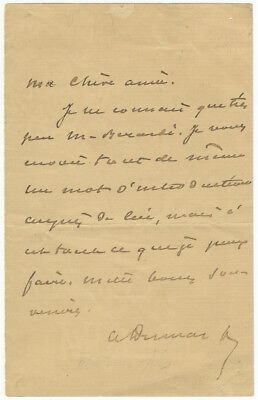 Ma chère amie.
Je ne connais que très
peu M. Berardi. Je vous
envoie tout de même
un mot d'introduction
auprès de lui, mais c'
est tout ce que je puis
faire. Mille bons sou-
venirs.
A Dumas f